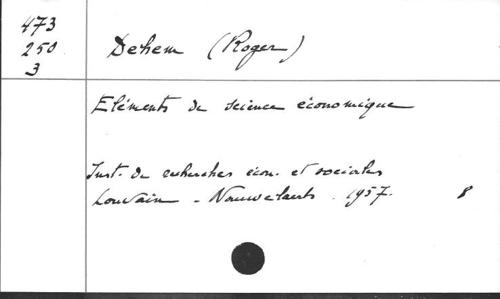 473
250
3
Dehem (Roger)
Eléments de science économique
Inst. de recherches écon. et sociales
Louvain - Nauwelaerts. 1957. 8